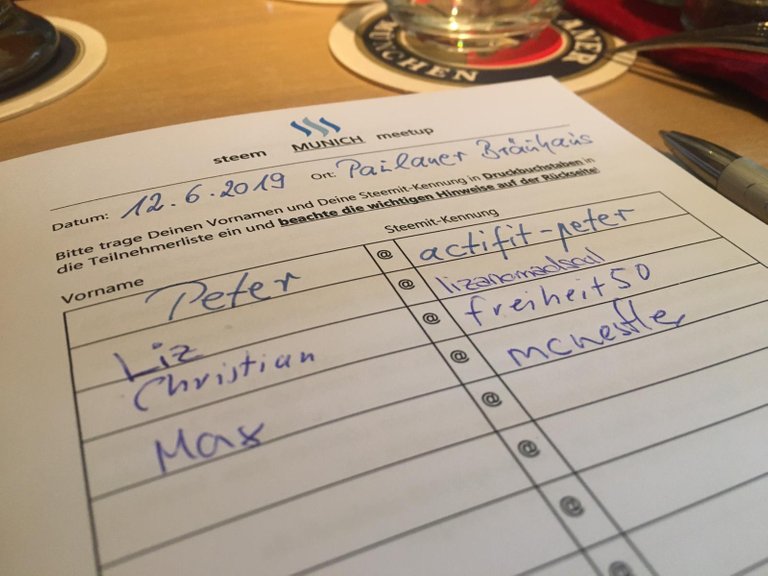 MÜNCHEN
ANER
steem MUNICH meetup
Datum: 12.6.2019 Ort: Paulaner Bräuhaus
Bitte trage Deinen Vornamen und Deine Steemit-Kennung in Druckbuchstaben in
die Teilnehmerliste ein und beachte die wichtigen Hinweise auf der Rückseite!
Vorname Steemit-Kennung
Peter @ actifit-peter
Liz @ lizanomadsoul
Christian @ freiheit50
Max @ mcnestler
@
@
@
@